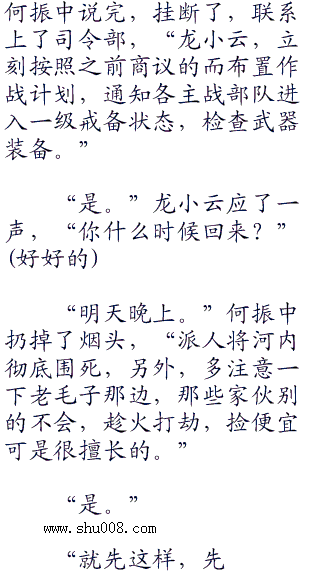 何振中说完，挂断了，联系
上了司令部，“龙小云，立
刻按照之前商议的而布置作
战计划，通知各主战部队进
入一级戒备状态，检查武器
装备。”
“是。”龙小云应了一
声，“你什么时候回来？”
(好好的)
“明天晚上。”何振中
扔掉了烟头，“派人将河内
彻底围死，另外，多注意一
下老毛子那边，那些家伙别
的不会，趁火打劫，捡便宜
可是很擅长的。”
“是。”
www.shu008.com
“就先这样，先